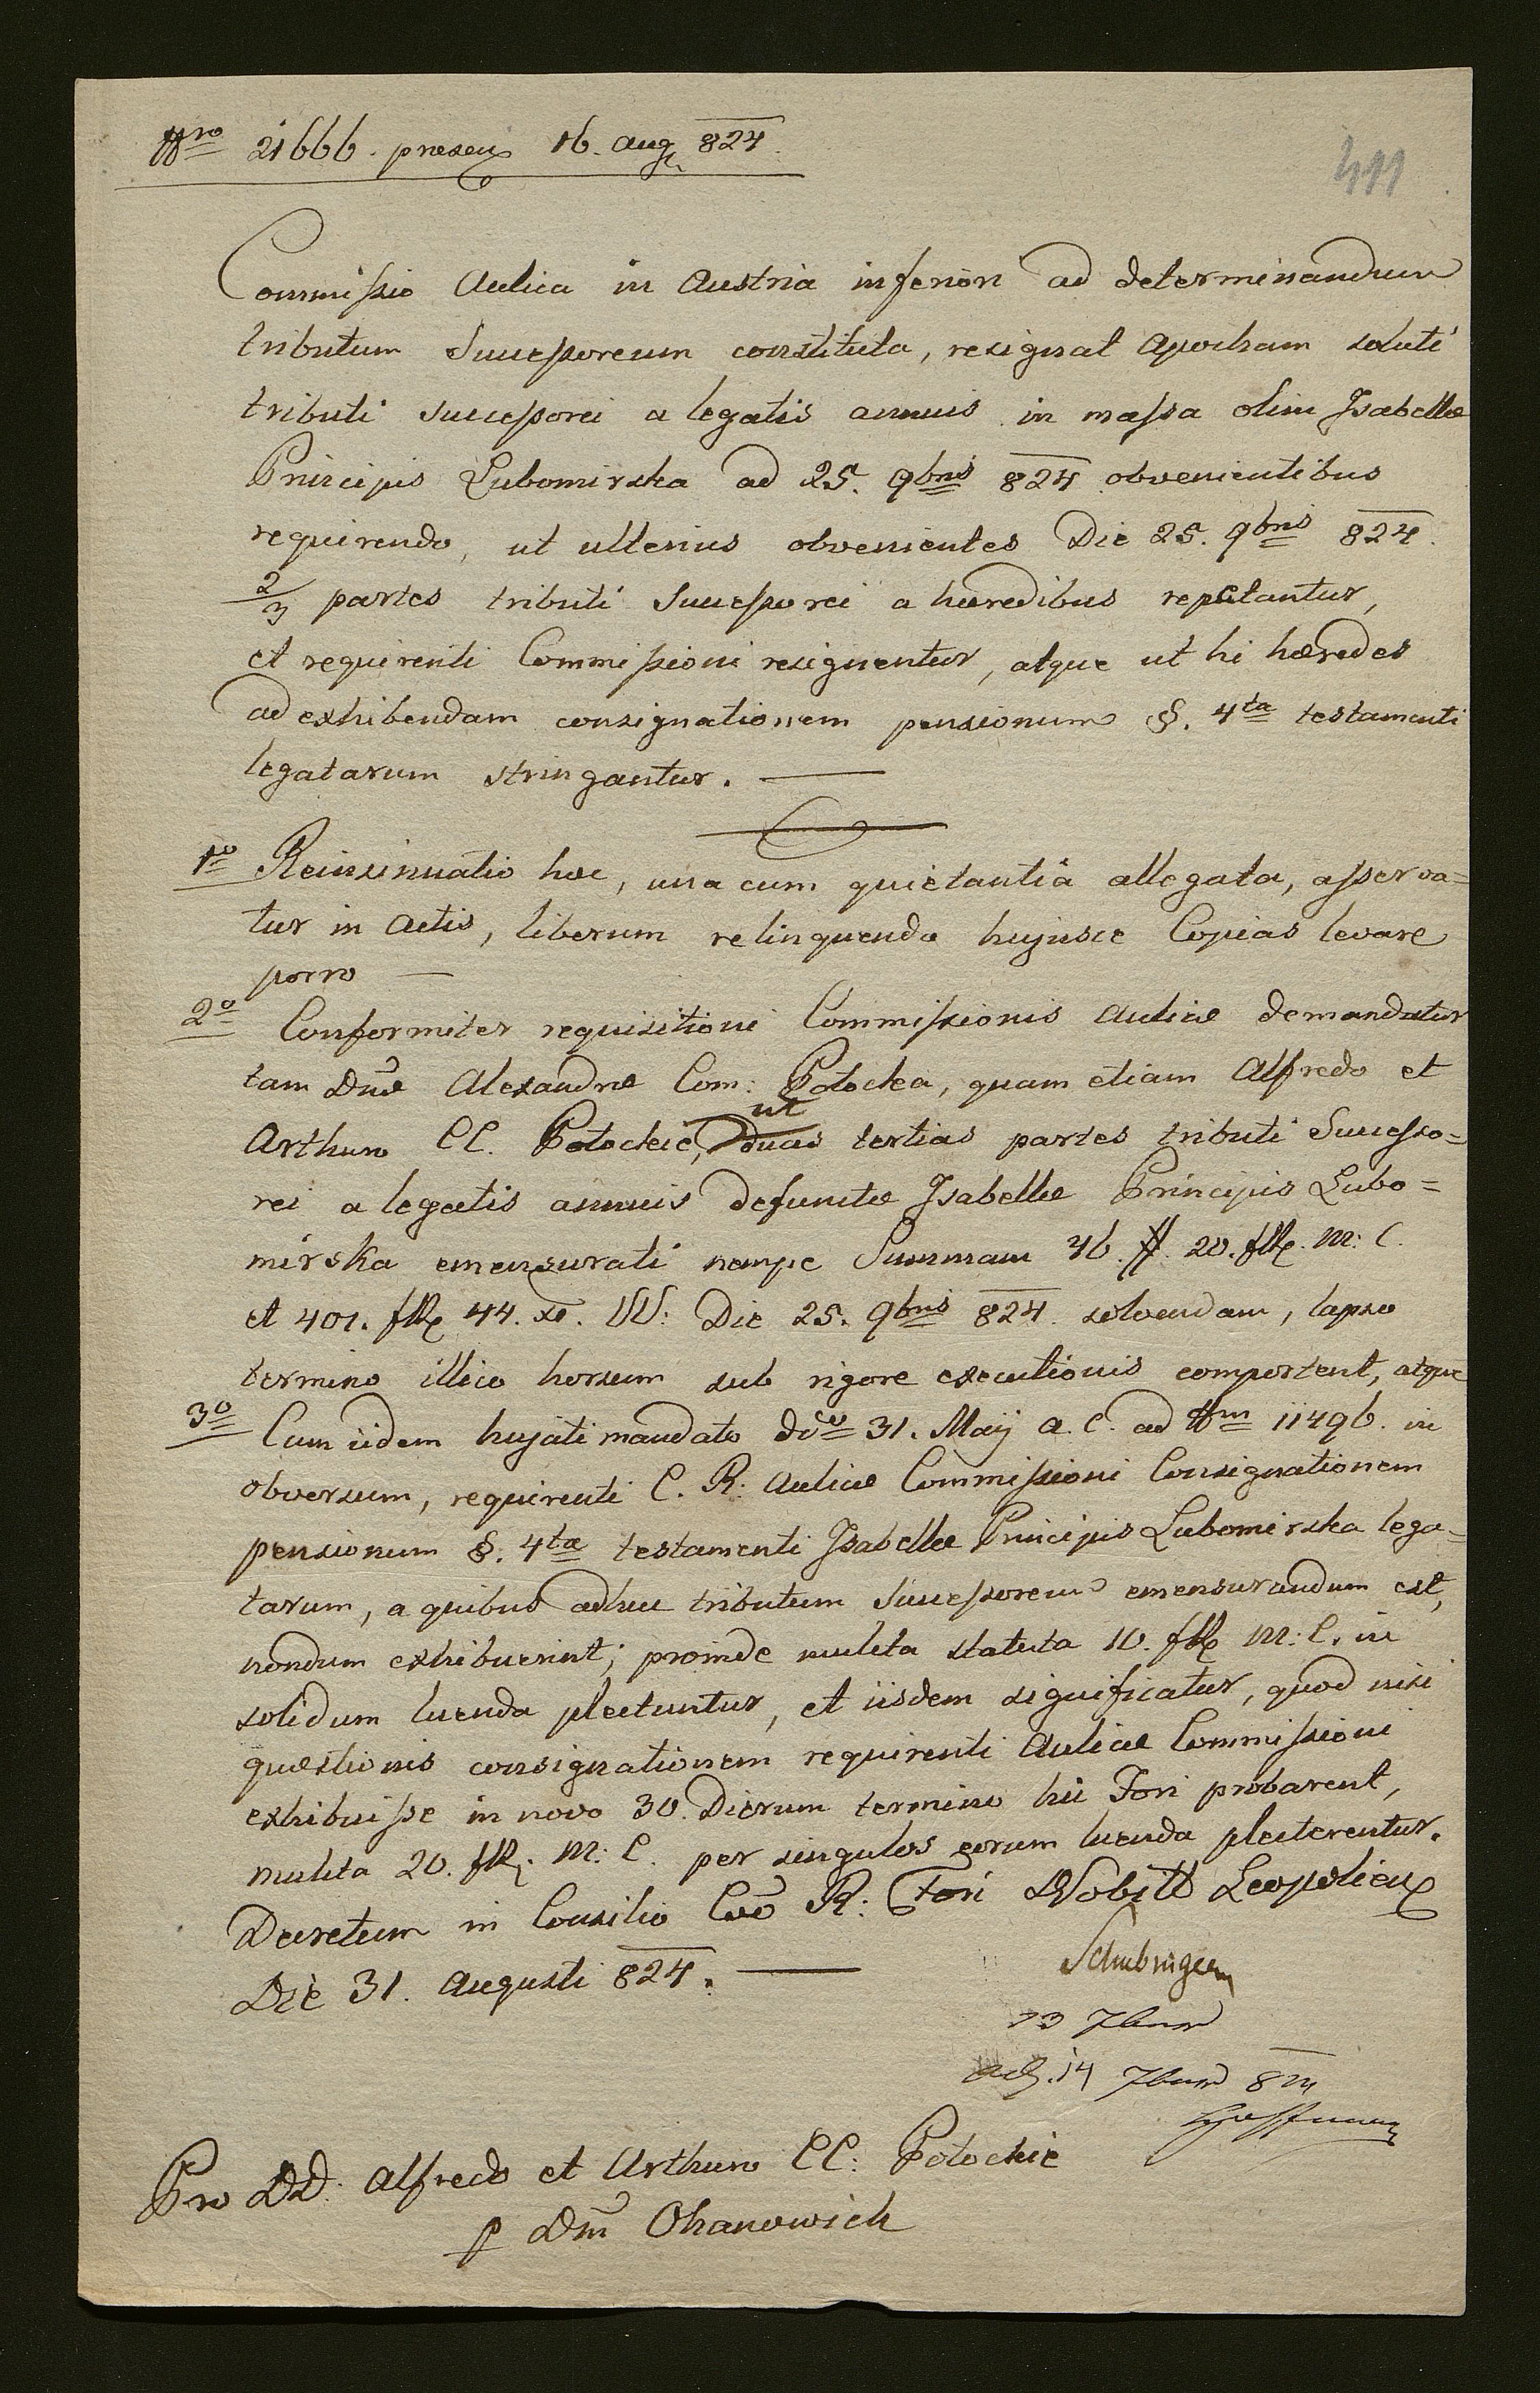 Nro 21666. praesen 16. Aug 824.
411
Commissio Aulica in Austria inferiori ad determinandum
tributum Successoreum constituta, resignat Apocham soluti
tributi successorei a legatis annuis in massa olim Isabellæ
Principis Lubomirska ad 25. 9bris 824 obvenientibus
requirendo, ut ulterius obvenientes Die 25. 9bris 824.
2/3 partes tributi successorei a hæredibus repetantur,
et requirenti Commissioni resignentur, atque ut hi hæredes
ad exhibendam consignationem pensionum §. 4ta testamenti
legatarum stringantur. —
1o Reinsinuatio hæc, una cum quietantia allegata, asserva=
tur in Actis, liberum relinquendo hujusce Copias levare
porro —
2o Conformiter requisitioni Commissionis Aulicæ demandatur
tam Dnæ Alexandræ Com: Potocka, quam etiam Alfredo et
Arthuro CC. Potockie, ut duas tertias partes tributi Successo=
rei a legatis annuis defunctæ Isabellæ Principis Lubo=
mirska emensurati nempe Summam 46. # 20. fR. M: C.
et 401. fR 44. xr. VV: Die 25. 9bris 824. solvendam, lapso
termino illico horsum sub rigore executionis comportent, atque
3o Cum iidem hujati mandato ddo 31. Maÿ a. c. ad Nrm 11496. in
obversum, requirenti C. R: Aulicæ Commissioni Consignationem
pensionum §. 4ta testamenti Isabellæ Principis Lubomirska lega=
tarum, a quibus adhuc tributum Successoreum emensurandum est,
nondum exhibuerint; proinde mulcta statuta 10. fR M: C. in
solidum luenda plectuntur, et iisdem significatur, quod nisi
quæstionis consignationem requirenti Aulicæ Commissioni
exhibuisse in novo 30. Dierum termino hic Fori probarent,
mulcta 20. fR. M: C. per singulos eorum luenda plecterentur.
Decretum in Consilio Cæo R: Fori Nobil Leopolien
Die 31. Augusti 824. —
13 7bris
14 7bris 824
Pro DD: Alfredo et Arthuro CC: Potockie
p Dm Ohanowich